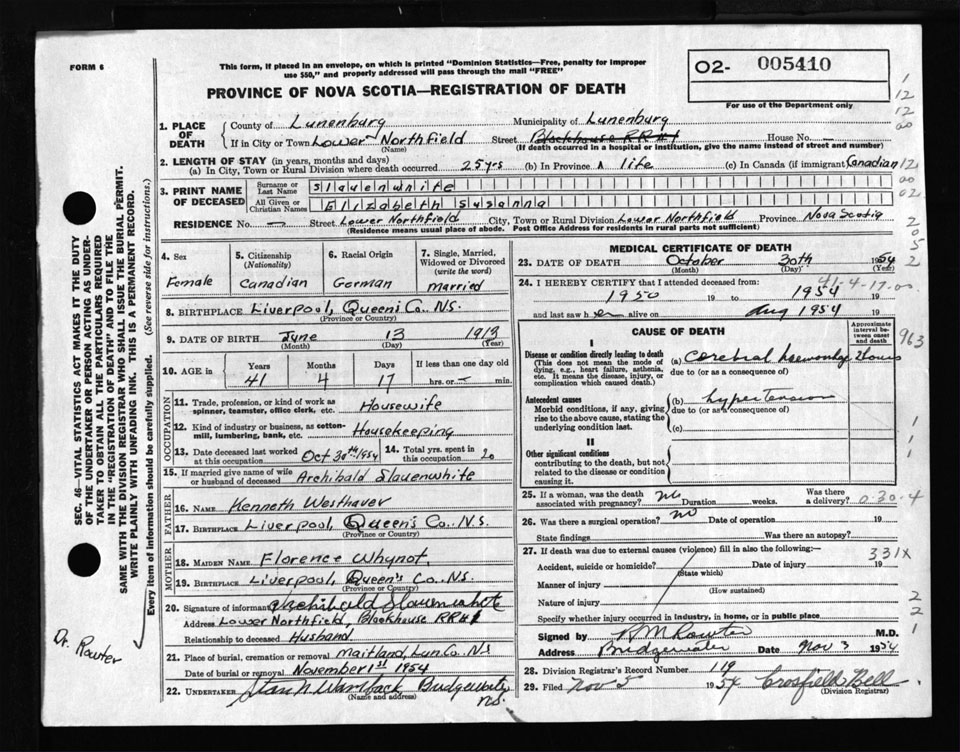 FORM 6
This form, if placed in an envelope, on which is printed "Dominion Statistics—Free, penalty for improper
use $50," and properly addressed will pass through the mail "FREE"
O2- 005410
For use of the Department only
PROVINCE OF NOVA SCOTIA—REGISTRATION OF DEATH
1. PLACE OF DEATH
County of Lunenburg Municipality of Lunenburg
If in City or Town Lower Northfield Street Blockhouse RR#1 House No. —
(Name) (If death occurred in a hospital or institution, give the name instead of street and number)
2. LENGTH OF STAY (in years, months and days)
(a) In City, Town or Rural Division where death occurred 25 yrs (b) In Province A life (c) In Canada (if immigrant) Canadian
3. PRINT NAME OF DECEASED
Surname or Last Name Slauenwhite
All Given or Christian Names Elizabeth Susanna
RESIDENCE No. — Street Lower Northfield City, Town or Rural Division Lower Northfield Province Nova Scotia
(Residence means usual place of abode. Post Office Address for residents in rural parts not sufficient)
4. Sex Female
5. Citizenship (Nationality) Canadian
6. Racial Origin German
7. Single, Married, Widowed or Divorced (write the word) married
8. BIRTHPLACE Liverpool, Queens Co., N.S.
(Province or Country)
9. DATE OF BIRTH June 13 1913
(Month) (Day) (Year)
10. AGE in Years Months Days If less than one day old
41 4 17 hrs. or — min.
OCCUPATION
11. Trade, profession, or kind of work as spinner, teamster, office clerk, etc. Housewife
12. Kind of industry or business, as cotton-mill, lumbering, bank, etc. Housekeeping
13. Date deceased last worked at this occupation Oct 30th 1954
14. Total yrs. spent in this occupation 20
15. If married give name of wife or husband of deceased Archibald Slauenwhite
FATHER
16. Name Kenneth Westhaver
17. Birthplace Liverpool, Queen's Co. N.S.
(Province or Country)
MOTHER
18. Maiden Name Florence Whynot
19. Birthplace Liverpool, Queen's Co., N.S.
(Province or Country)
20. Signature of informant Archibald Slauenwhite
Address Lower Northfield, Blockhouse RR#1
Relationship to deceased Husband
21. Place of burial, cremation or removal Maitland, Lun. Co. N.S
Date of burial or removal November 1st 1954
22. Undertaker Bridgewater N.S.
(Name and address)
MEDICAL CERTIFICATE OF DEATH
23. DATE OF DEATH October 30th 1954
(Month) (Day) (Year)
24. I HEREBY CERTIFY that I attended deceased from:
41-4-17-00
1950 19 to 1954 19
and last saw her alive on Aug 1954 19
CAUSE OF DEATH
Approximate interval between onset and death
I
Disease or condition directly leading to death
(This does not mean the mode of dying, e.g., heart failure, asthenia, etc. It means the disease, injury, or complication which caused death.)
(a) Cerebral haemorrhage hours
due to (or as a consequence of)
Antecedent causes
Morbid conditions, if any, giving rise to the above cause, stating the underlying condition last.
(b) hypertension
due to (or as a consequence of)
(c)
II
Other significant conditions
contributing to the death, but not related to the disease or condition causing it.
25. If a woman, was the death associated with pregnancy? no Duration weeks. Was there a delivery? 0-30-4
26. Was there a surgical operation? no Date of operation 19
State findings Was there an autopsy?
27. If death was due to external causes (violence) fill in also the following:—
331X
Accident, suicide or homicide? Date of injury 19
(State which)
Manner of injury
(How sustained)
Nature of injury
Specify whether injury occurred in industry, in home, or in public place
Signed by M.D.
Address Bridgewater Date Nov 3 1954
28. Division Registrar's Record Number 119
29. Filed Nov 5 1954 Crosfield Bell
(Division Registrar)
963
SEC. 46—VITAL STATISTICS ACT MAKES IT THE DUTY
OF THE UNDERTAKER OR PERSON ACTING AS UNDER-
TAKER TO OBTAIN ALL THE PARTICULARS REQUIRED
IN THE "REGISTRATION OF DEATH" AND TO FILE THE
SAME WITH THE DIVISION REGISTRAR WHO SHALL ISSUE THE BURIAL PERMIT.
WRITE PLAINLY WITH UNFADING INK. THIS IS A PERMANENT RECORD.
Every item of information should be carefully supplied. (See reverse side for instructions.)
Dr. Rowter